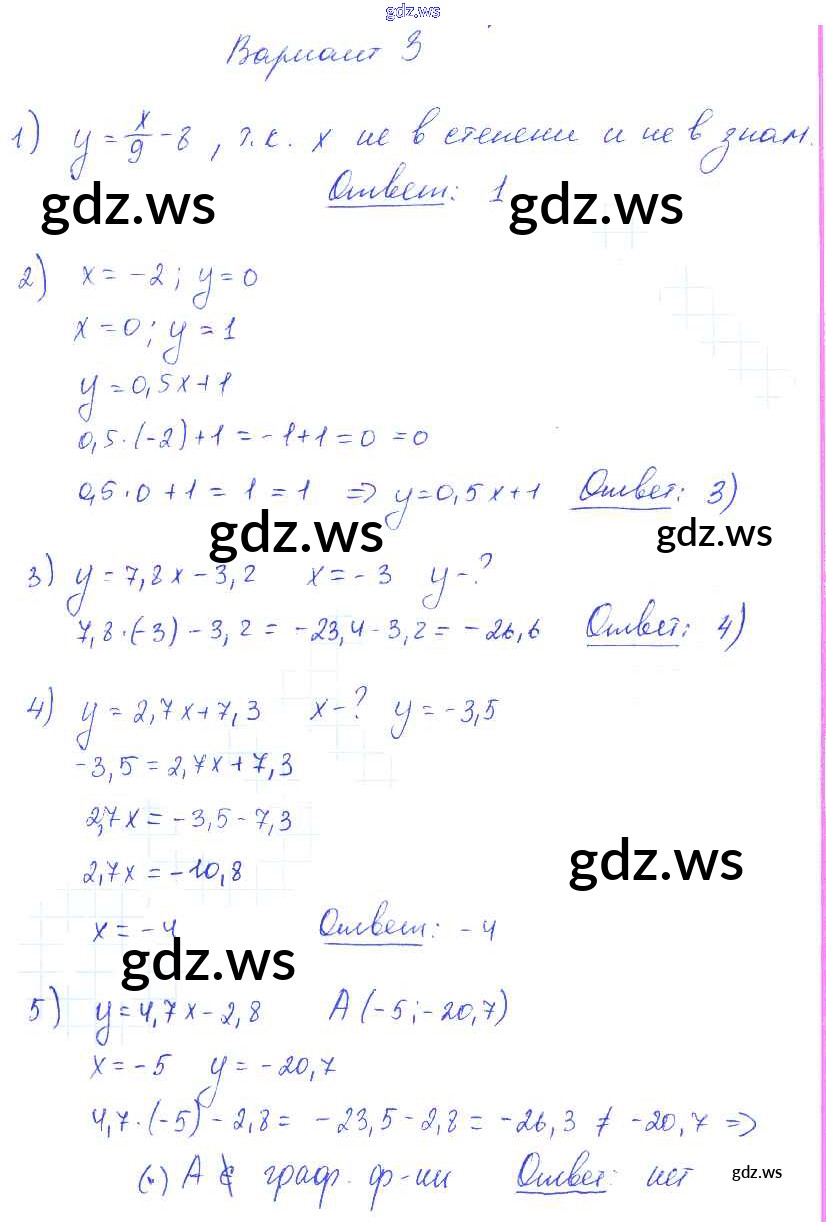 gdz.ws
Вариант 3
1) y = x/9 - 8, т.к. x не в степени и не в знам.
Ответ: 1
gdz.ws gdz.ws
2) x = -2; y = 0
x = 0; y = 1
y = 0,5x+1
0,5·(-2)+1 = -1+1 = 0 = 0
0,5·0+1 = 1 = 1 => y=0,5x+1 Ответ: 3)
gdz.ws gdz.ws
3) y = 7,8x - 3,2 x = -3 y - ?
7,8·(-3) - 3,2 = -23,4 - 3,2 = -26,6 Ответ: 4)
4) y = 2,7x+7,3 x - ? y = -3,5
-3,5 = 2,7x+7,3
2,7x = -3,5 - 7,3
2,7x = -10,8
gdz.ws
x = -4 Ответ: -4
gdz.ws
5) y = 4,7x - 2,8 A (-5; -20,7)
x = -5 y = -20,7
4,7·(-5) - 2,8 = -23,5 - 2,8 = -26,3 ≠ -20,7 =>
(·) A ∉ граф. ф-ии Ответ: нет
gdz.ws